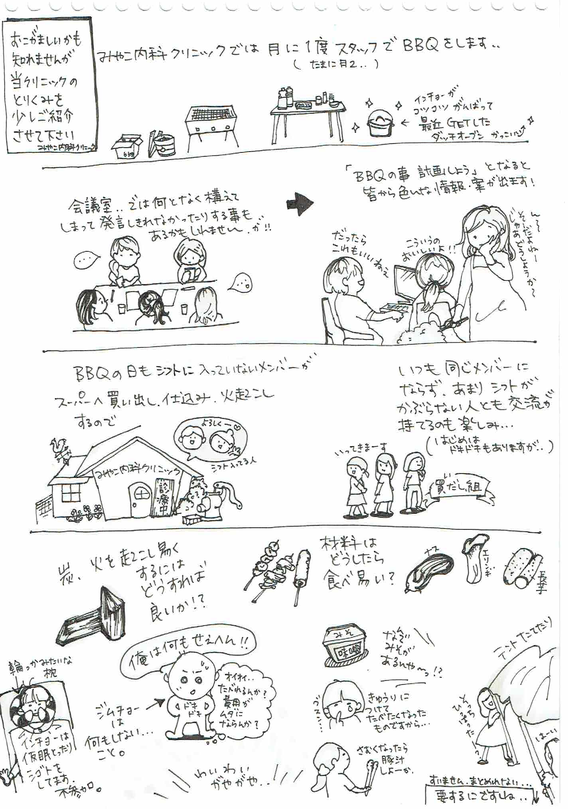 おこがましいかも
知れませんが
当クリニックの
とりくみを
少しご紹介
させて下さい
みやこ内科クリニック
みやこ内科クリニックでは 月に1度 スタッフで BBQをします..
(たまに月2..)
インチョーが
コツコツ がんばって
最近 GETした
ダッチオーブン かっこいい
会議室..では何となく構えて
しまって発言しきれなかったりする事も
あるかもしれません.が!!
「BBQの事 計画しよう」となると
皆から色んな情報・案が出ます!
だったら
これもいいねぇ
こういうの
おいしいよ!!
ん〜
そうだよねー
じゃあどうしようか〜
BBQの日も シフトに 入っていないメンバーが
スーパーへ買い出し.仕込み.火起こし
するので
よろしくー
シフト入ってる人
みやこ内科クリニック
診療中
いつも 同じメンバーに
ならず. あまり シフトが
かぶらない人とも交流が
持てるのも楽しみ...
(はじめは
ドキドキもありますが..)
いってきまーす
買い出し組
炭. 火を起こし易く
するには
どうすれば
良いか!?
材料は
どうしたら
食べ易い?
ナス
エリンギ
長芋
俺は何もせぇへん!!
オイオイ..
たべれるんか?
費用が
ムダに
ならんか?
ドキドキ
ジムチョー
は
何もしない...
こと。
輪っかみたいな
枕
インチョーは
仮眠とったり
シゴトを
してます.
不参加。
わいわい
がやがや..
みそ
味噌
なぜ
みそが
あるんや〜っ!?
きゅうりに
つけて
たべたくなった
ものですから...
さむくなったら
豚汁
しよーか.
テントたてたり
ひっぱって
はーい
すいません.まとめれない...
要するにですね..